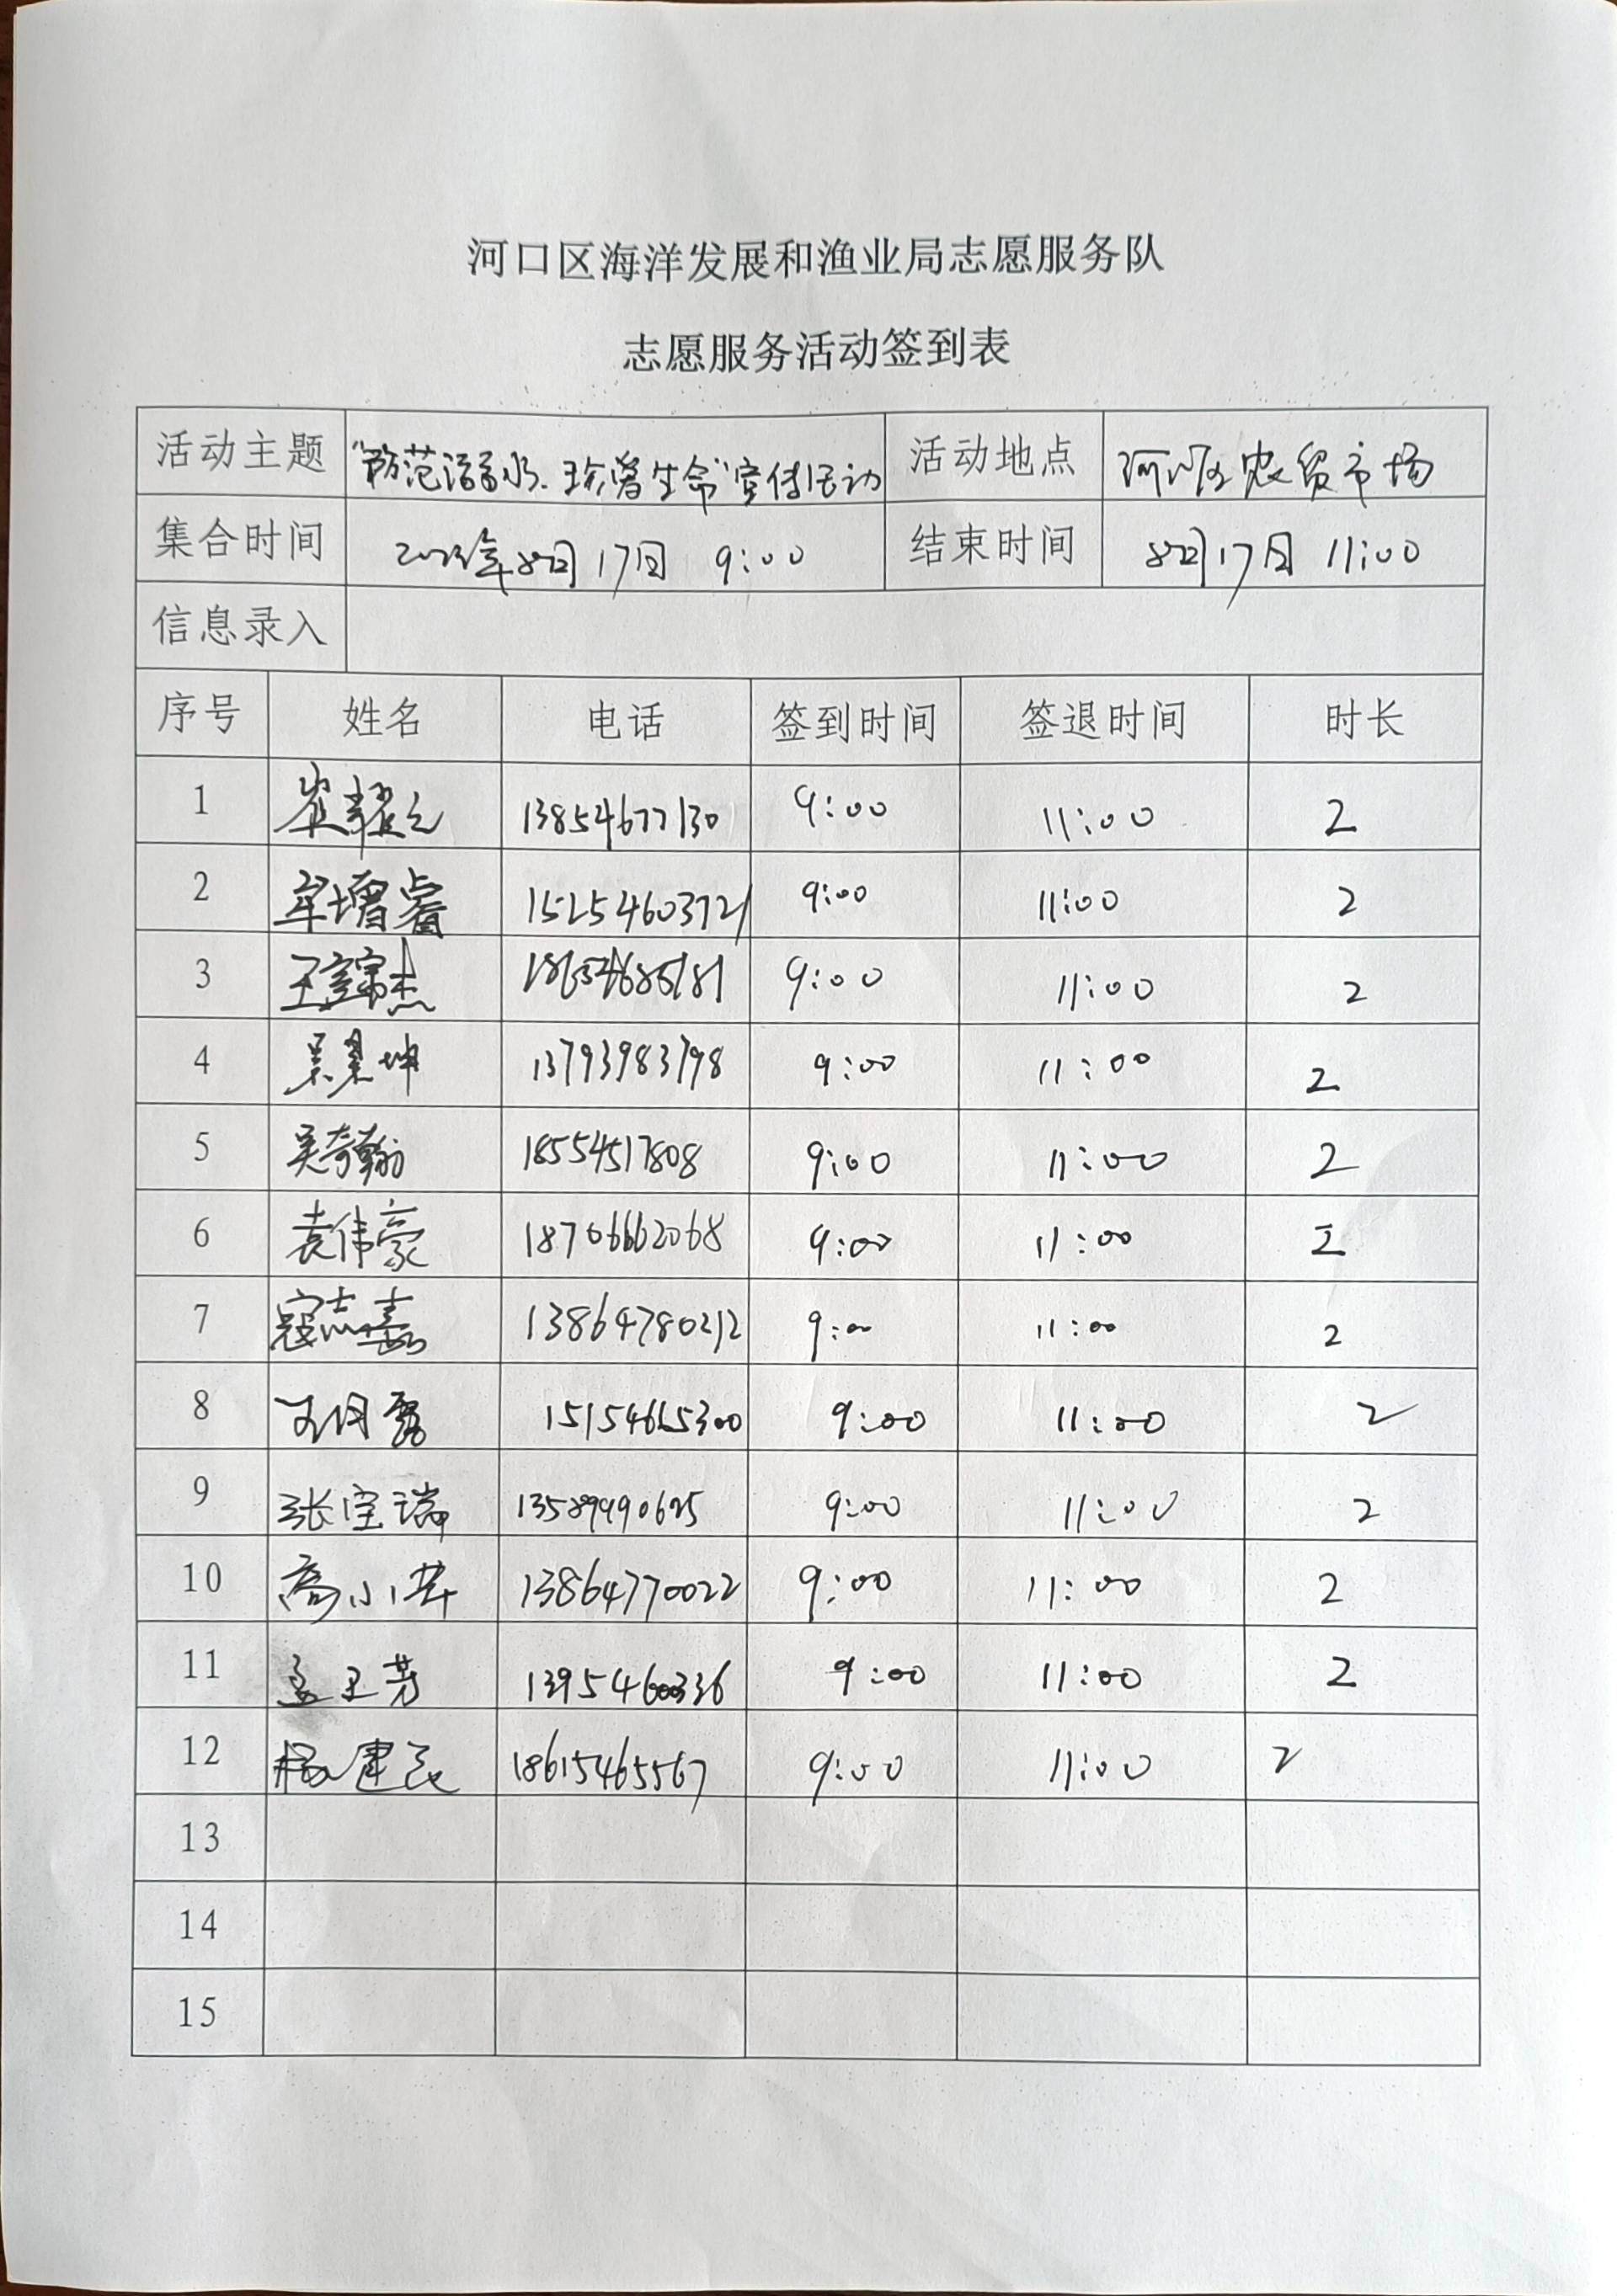 河口区海洋发展和渔业局志愿服务队
志愿服务活动签到表
活动主题 "防范溺水、珍爱生命"宣传活动 活动地点 河口区农贸市场
集合时间 2023年8月17日 9:00 结束时间 8月17日 11:00
信息录入
序号 姓名 电话 签到时间 签退时间 时长
1 崔耀元 13854677130 9:00 11:00 2
2 牟增睿 15254603721 9:00 11:00 2
3 9:00 11:00 2
4 13793983798 9:00 11:00 2
5 吴奇翰 18554517808 9:00 11:00 2
6 袁伟豪 18706662068 9:00 11:00 2
7 寇志嘉 13864780212 9:00 11:00 2
8 王月露 15154665300 9:00 11:00 2
9 张宝瑞 13589990625 9:00 11:00 2
10 高小洋 13864770022 9:00 11:00 2
11 孟卫芳 9:00 11:00 2
12 杨建民 18615465567 9:00 11:00 2
13
14
15